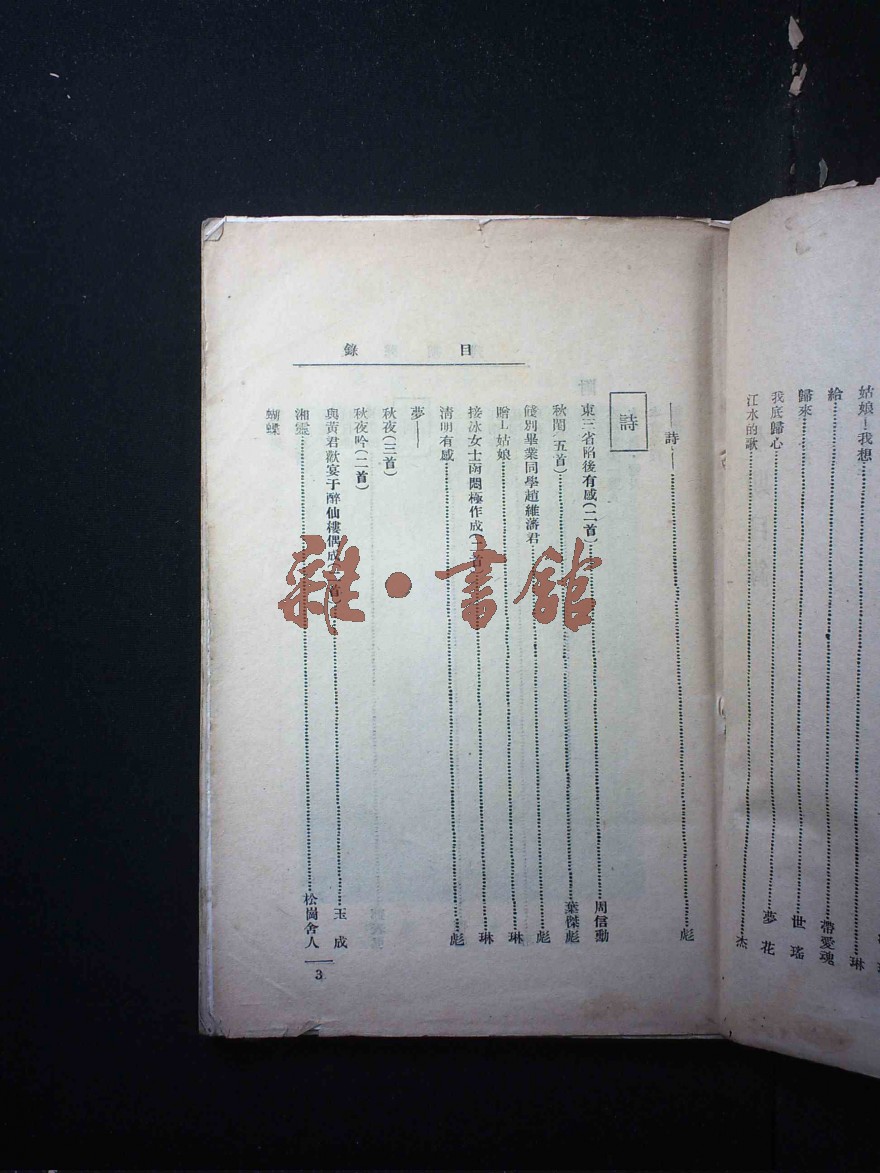 姑娘！我想……琳
給……帶愛魂
歸來……世瑤
我底歸心……夢花
江水的歌……杰
目錄
——詩——……彪
詩
東三省陷後有感(二首)……周信勳
秋閨(五首)……葉傑彪
餞別畢業同學趙維藩君……彪
贈上姑娘……琳
接泳女士函悶極作成(二首)……琳
清明有感……彪
夢——
秋夜(三首)
秋夜吟(二首)
與黃君歡宴于醉仙樓偶成(二首)……玉成
湘靈……松崗舍人
蝴蝶
3
雜·書館